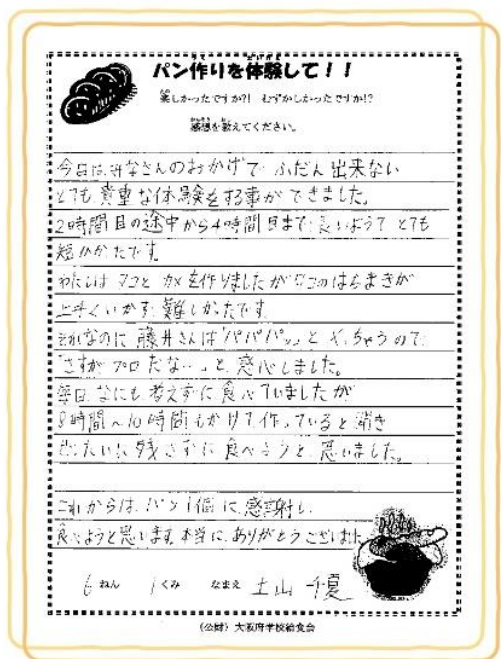 パン作りを体験して！！
楽しかったですか?! むずかしかったですか!?
感想を教えてください。
今日は、みなさんのおかげで ふだん 出来ない
とても 貴重な体験をする事が できました。
2時間目の途中から4時間目まで、長いようで とても
短かかたです。
わたしは ワニと カメを作りましたが ワニのはらまきが
上手くいかず、難しかたです。
それなのに 藤井さんは「パパパパッ」と やっちゃうので
「さすが プロ だな…」と、感心しました。
毎日、なにも 考えずに 食べていましたが
8時間〜10時間もかけて作っていると 聞き
ぜったいに 残さずに 食べようと、思いました。
これからは、パン1個に、感謝し、
食べようと思います。本当に、ありがとうございました
6 ねん 1 くみ なまえ 土山 千夏
(公財) 大阪府学校給食会